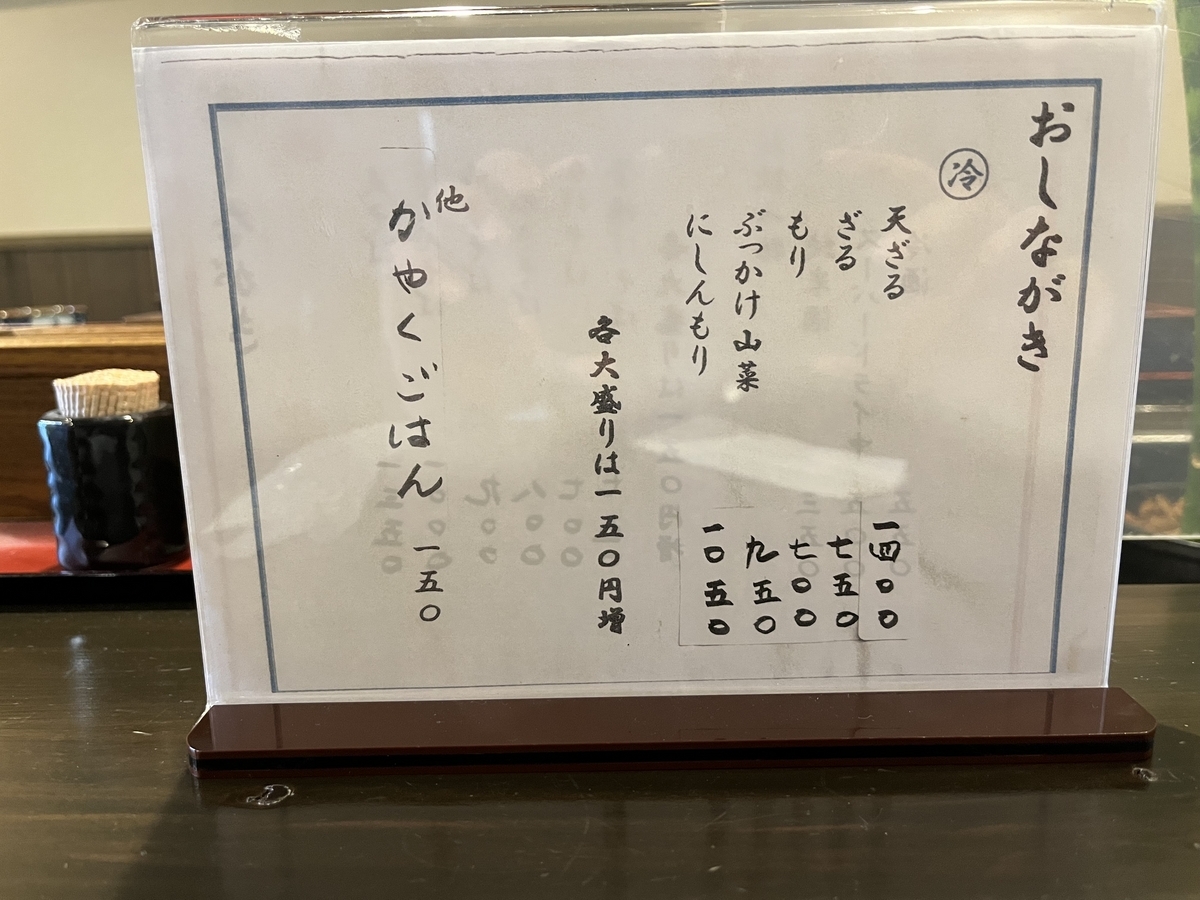 おしながき
冷
天ざる 一四〇〇
ざる 七五〇
もり 七〇〇
ぶっかけ山菜 九五〇
にしんもり 一〇五〇
各大盛りは一五〇円増
他
かやくごはん 一五〇